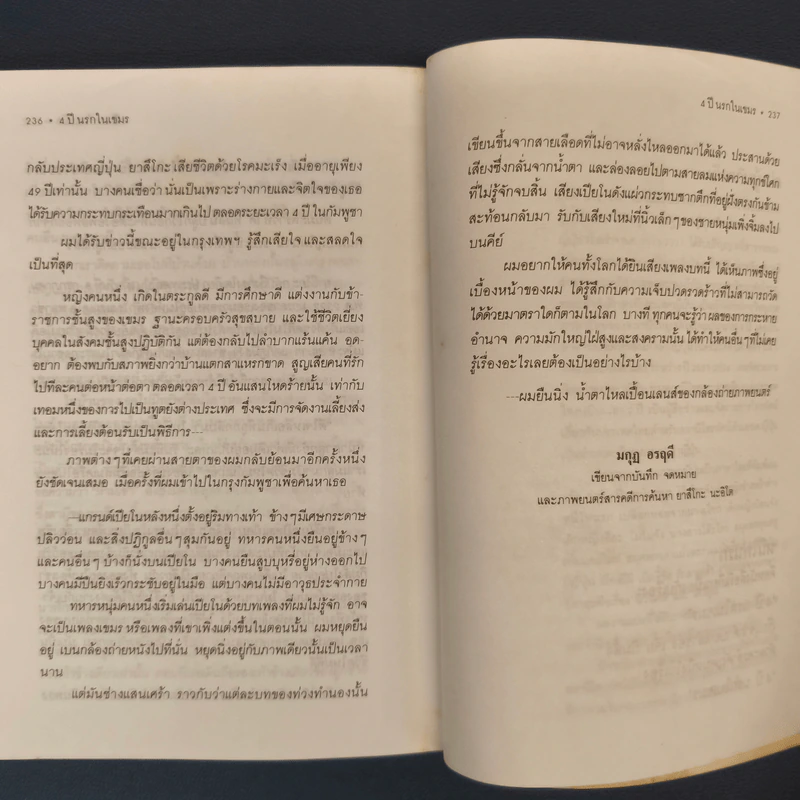 236 • 4 ปี นรกในเขมร
กลับประเทศญี่ปุ่น ยาสึโกะ เสียชีวิตด้วยโรคมะเร็ง เมื่ออายุเพียง
49 ปีเท่านั้น บางคนเชื่อว่า นั่นเป็นเพราะร่างกายและจิตใจของเธอ
ได้รับความกระทบกระเทือนมากเกินไป ตลอดระยะเวลา 4 ปี ในกัมพูชา
ผมได้รับข่าวนี้ขณะอยู่ในกรุงเทพฯ รู้สึกเสียใจ และสลดใจ
เป็นที่สุด
หญิงคนหนึ่ง เกิดในตระกูลดี มีการศึกษาดี แต่งงานกับข้า-
ราชการชั้นสูงของเขมร ฐานะครอบครัวสุขสบาย และใช้ชีวิตเยี่ยง
บุคคลในสังคมชั้นสูงปฏิบัติกัน แต่ต้องกลับไปลำบากแร้นแค้น อด-
อยาก ต้องพบกับสภาพยิ่งกว่าบ้านแตกสาแหรกขาด สูญเสียคนที่รัก
ไปทีละคนต่อหน้าต่อตา ตลอดเวลา 4 ปี อันแสนโหดร้ายนั้น เท่ากับ
เทอมหนึ่งของการไปเป็นทูตยังต่างประเทศ ซึ่งจะมีการจัดงานเลี้ยงส่ง
และการเลี้ยงต้อนรับเป็นพิธีการ---
ภาพต่างๆ ที่เคยผ่านสายตาของผมกลับย้อนมาอีกครั้งหนึ่ง
ยังชัดเจนเสมอ เมื่อครั้งที่ผมเข้าไปในกรุงกัมพูชาเพื่อค้นหาเธอ
---แกรนด์เปียโนหลังหนึ่งตั้งอยู่ริมทางเท้า ข้างๆ มีเศษกระดาษ
ปลิวว่อน และสิ่งปฏิกูลอื่นๆ สุมกันอยู่ ทหารคนหนึ่งยืนอยู่ข้างๆ
และคนอื่นๆ บ้างก็นั่งบนเปียโน บางคนยืนสูบบุหรี่อยู่ห่างออกไป
บางคนมีปืนยิงเร็วกระชับอยู่ในมือ แต่บางคนไม่มีอาวุธประจำกาย
ทหารหนุ่มคนหนึ่งเริ่มเล่นเปียโนด้วยบทเพลงที่ผมไม่รู้จัก อาจ
จะเป็นเพลงเขมร หรือเพลงที่เขาเพิ่งแต่งขึ้นในตอนนั้น ผมหยุดยืน
อยู่ เบนกล้องถ่ายหนังไปที่นั่น หยุดนิ่งอยู่กับภาพเดียวนั้นเป็นเวลา
นาน
แต่มันช่างแสนเศร้า ราวกับว่าแต่ละบทของท่วงทำนองนั้น
4 ปี นรกในเขมร • 237
เขียนขึ้นจากสายเลือดที่ไม่อาจหลั่งไหลออกมาได้แล้ว ประสานด้วย
เสียงซึ่งกลั่นจากน้ำตา และล่องลอยไปตามสายลมแห่งความทุกข์โศก
ที่ไม่รู้จักจบสิ้น เสียงเปียโนดังแผ่วกระทบซากตึกที่อยู่ฝั่งตรงกันข้าม
สะท้อนกลับมา รับกับเสียงใหม่ที่นิ้วเล็กๆ ของชายหนุ่มเพิ่งจิ้มลงไป
บนคีย์
ผมอยากให้คนทั้งโลกได้ยินเสียงเพลงบทนี้ ได้เห็นภาพซึ่งอยู่
เบื้องหน้าของผม ได้รู้สึกกับความเจ็บปวดรวดร้าวที่ไม่สามารถวัด
ได้ด้วยมาตราใดก็ตามในโลก บางที ทุกคนจะรู้ว่า ผลของการกระหาย
อำนาจ ความมักใหญ่ใฝ่สูงและสงครามนั้น ได้ทำให้คนอื่นๆ ที่ไม่เคย
รู้เรื่องอะไรเลยต้องเป็นอย่างไรบ้าง
---ผมยืนนิ่ง น้ำตาไหลเปื้อนเลนส์ของกล้องถ่ายภาพยนตร์
มกุฏ อรฤดี
เขียนจากบันทึก จดหมาย
และภาพยนตร์สารคดีการค้นหา ยาสึโกะ นะอิโต